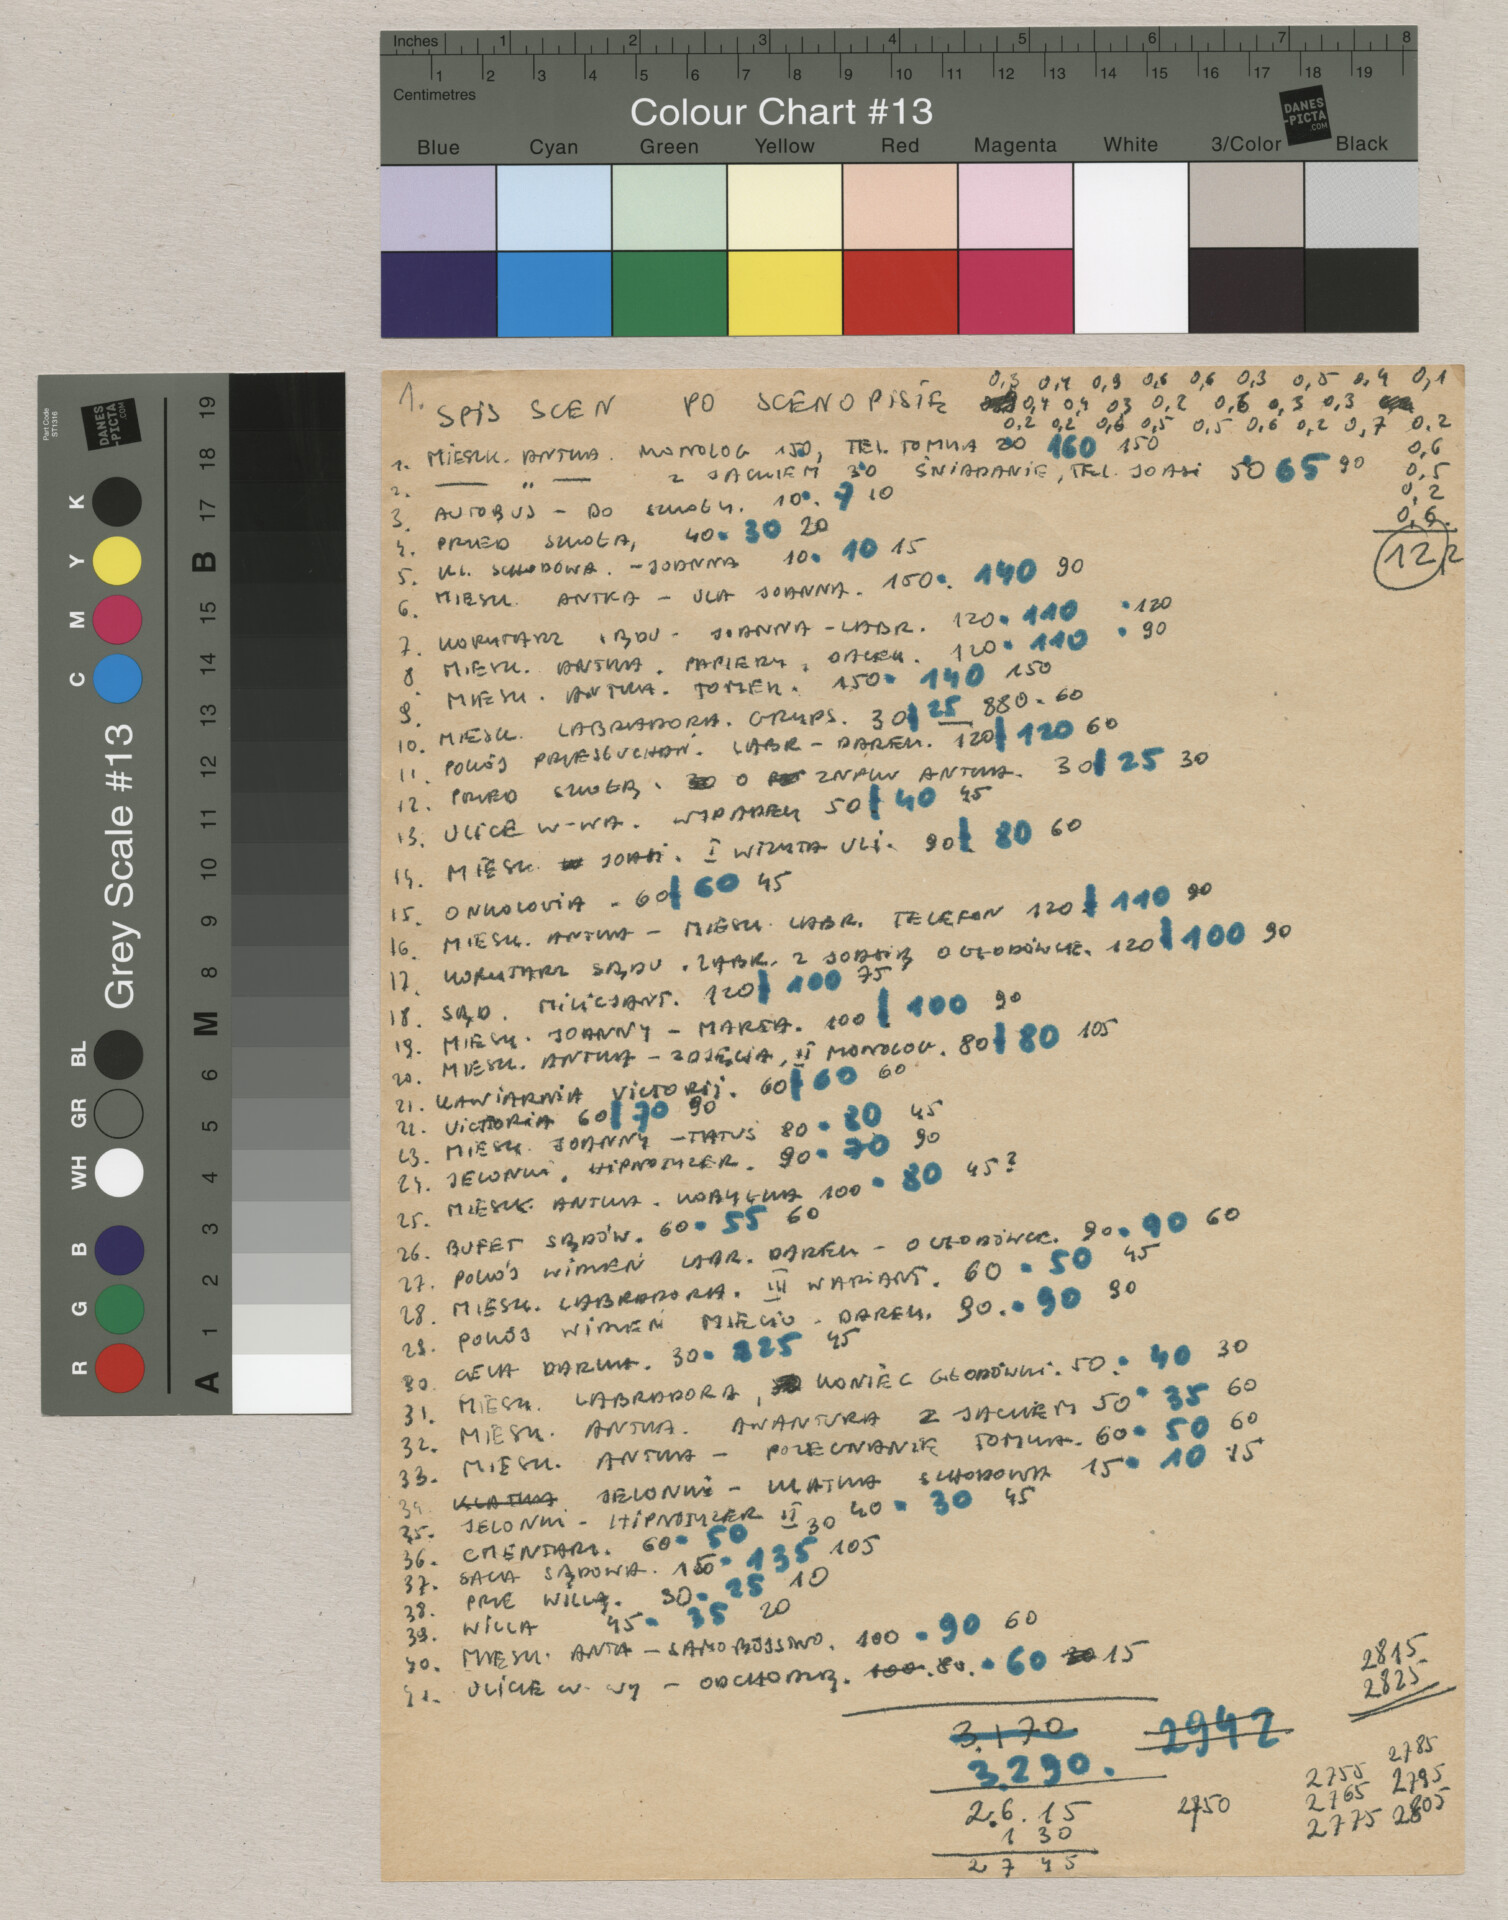 Inches 1 2 3 4 5 6 7 8
1 2 3 4 5 6 7 8 9 10 11 12 13 14 15 16 17 18 19
Centimetres
Colour Chart #13
DANES
-PICTA
.COM
Blue Cyan Green Yellow Red Magenta White 3/Color Black
Part Code
ST1316
DANES
-PICTA
.COM
Grey Scale #13
R G B WH GR BL C M Y K
A 1 2 3 4 5 6 M 8 9 10 11 12 13 14 15 B 17 18 19
0,3 0,4 0,9 0,6 0,6 0,3 0,5 0,4 0,1
1. SPIS SCEN PO SCENOPISIE 0,4 0,4 03 0,2 0,6 0,3 0,3
0,2 0,2 0,6 0,5 0,5 0,6 0,2 0,7 0,2
0,6
0,5
0,2
0,6.
12,2
1. MIESZK. ANTKA. MONOLOG 150, TEL TOMKA 20 160 150
2. — " — Z JACKIEM 30 ŚNIADANIE, TEL JOASI 50 65 90
3. AUTOBUS - DO SZKOŁY. 10. 7 10
4. PRZED SZKOŁĄ, 40. 30 20
5. KL. SCHODOWA. - JOANNA 10. 10 15
6. MIESZK. ANTKA - ULA JOANNA. 150. 140 90
7. KORYTARZ SĄDU - JOANNA - LABR. 120. 110 120
8 MIESZK. ANTKA. PAPIERY, JACEK. 120. 110 90
9. MIESZK. ANTKA. TOMEK. 150. 140 150
10. MIESZK. LABRADORA. GRYPS. 30 25 880. 60
11. POKÓJ PRZESŁUCHAŃ. LABR - DAREK. 120 120 60
12. PRZED SZKOŁĄ. O ZNAKU ANTKA. 30 25 30
13. ULICE W-WA. WYPADEK 50 40 45
14. MIESZK. JOASI. I WIZYTA ULI. 90 80 60
15. ONKOLOGIA - 60 60 45
16. MIESZK. ANTKA - MIESZK. LABR. TELEFON 120 110 90
17. KORYTARZ SĄDU. LABR. Z JOASIĄ O GŁODÓWCE. 120 100 90
18. SĄD. MILICJANT. 120 100 75
19. MIESZK. JOANNY - MARTA. 100 100 90
20. MIESZK. ANTKA - ZDJĘCIA, II MONOLOG. 80 80 105
21. KAWIARNIA VICTORII. 60 60 60
22. VICTORIA 60 70 90
23. MIESZK. JOANNY - TATUŚ 80. 80 45
24. JELONKI. HIPNOTYZER. 90. 70 90
25. MIESZK. ANTKA. KOBYŁKA 100. 80 45?
26. BUFET SĄDÓW. 60. 55 60
27. POKÓJ WIDZEŃ LABR. DAREK - O GŁODÓWCE. 90. 90 60
28. MIESZK. LABRADORA. III WARIANT. 60. 50 45
29. POKÓJ WIDZEŃ MIECIO - DAREK. 90. 90 90
30. CELA DARKA. 30. 25 45
31. MIESZK. LABRADORA, KONIEC GŁODÓWKI. 50. 40 30
32. MIESZK. ANTKA. AWANTURA Z JACKIEM 50. 35 60
33. MIESZK. ANTKA - POŻEGNANIE TOMKA. 60. 50 60
34. KLATKA JELONKI - KLATKA SCHODOWA 15. 10 15
35. JELONKI - HIPNOTYZER II 30 40. 30 45
36. CMENTARZ. 60. 50
37. SALA SĄDOWA. 150. 135 105
38. PRZED WILLĄ. 30. 25 10
39. WILLA 45. 35 20
40. MIESZK. ANTKA - SAMOBÓJSTWO. 100. 90 60
41. ULICZE W-WY - ODCHODZĄ. 100. 80. 60 30 15
2815.
2825
3.170 2942
3.290.
2.6.15 2750
1 30
2 7 45
2785
2755 2795
2765 2805
2775